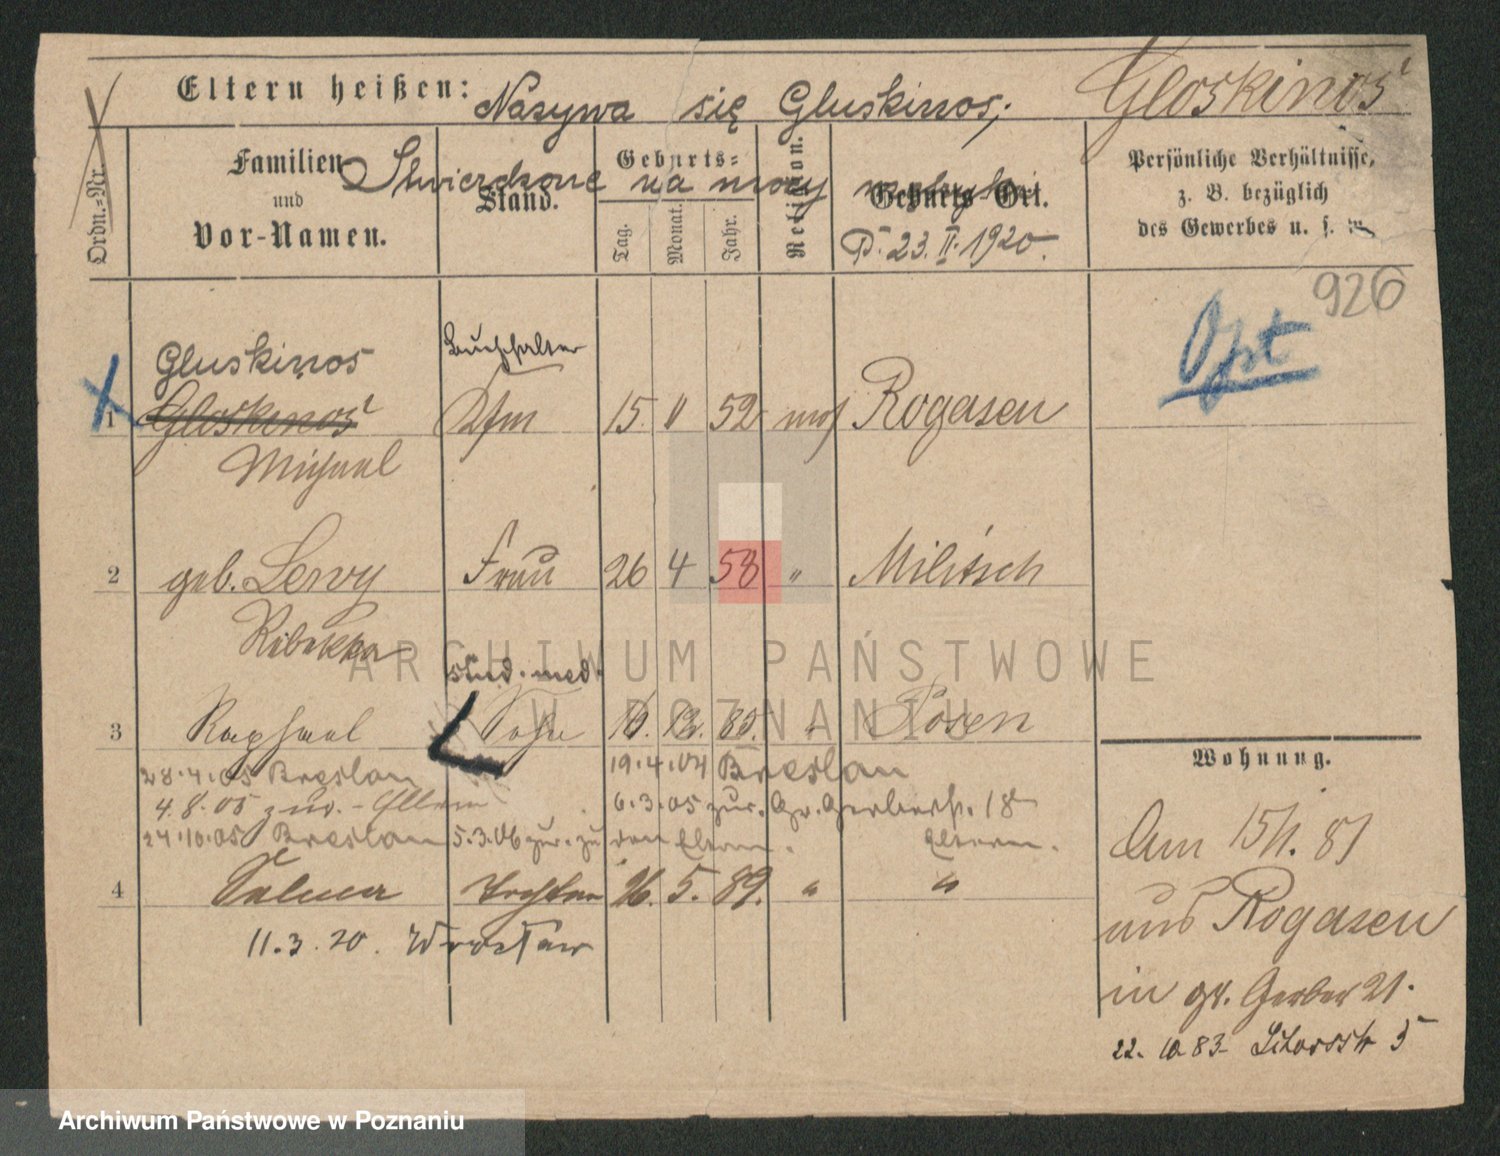 Eltern heißen: Nazywa się Gluskinos; Gloskinos
Stwierdzone na mocy
Ordn.-Nr.
Familien
und
Vor-Namen.
Stand.
Geburts-
Tag.
Monat.
Jahr.
Religion.
Geburts-Ort.
23. II. 1920.
Persönliche Verhältnisse,
z. B. bezüglich
des Gewerbes u. s. w.
926
Opt
Gluskinos Buchhalter
1 Gloskinos Kfm 15 11 52 mos Rogasen
Michael
2 geb. Levy Frau 26 4 58 " Militsch
Rebekka
stud. med.
3 Raphael Sohn 85. " Posen
28.4.05 Breslau 19.4.04 Breslau
4.8.05 zur. - Eltern 6.3.05 zur. Gr. Gerberstr. 18
24.10.05 Breslau 5.3.06 zur. zu den Eltern. Eltern.
4 Selma Tochter 26. 5. 89. " "
11.3.20. Wrocław
Wohnung.
Am 15/1. 81
aus Rogasen
in gr. Gerber 21.
22. 10 83- 5
ARCHIWUM PAŃSTWOWE
W POZNANIU
Archiwum Państwowe w Poznaniu